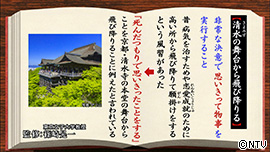 「清水の舞台から飛び降りる」
非常な決意で思いきって物事を
実行すること
昔病気を治すためや恋愛成就のために
高い所から飛び降りて願掛けをする
という風習があった
「死んだつもりで思いきったことをする」
ことを京都・清水寺の本堂の舞台から
飛び降りることに例えたと言われている
©NTV